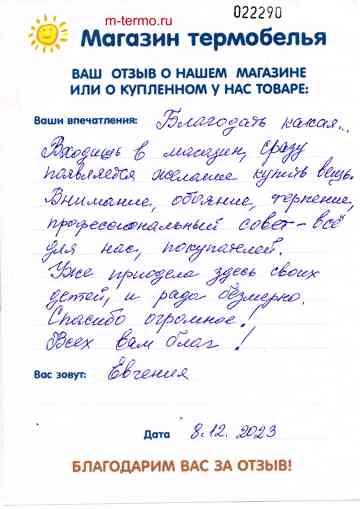 m-termo.ru
022290
Магазин термобелья
ВАШ ОТЗЫВ О НАШЕМ МАГАЗИНЕ
ИЛИ О КУПЛЕННОМ У НАС ТОВАРЕ:
Ваши впечатления: Благодать какая...
Входишь в магазин, сразу
появляется желание купить вещь.
Внимание, обаяние, терпение,
профессиональный совет – всё
для нас, покупателей.
Уже приодела здесь своих
детей, и рада безмерно.
Спасибо огромное!
Всех вам благ!
Вас зовут: Евгения
Дата 8.12.2023
БЛАГОДАРИМ ВАС ЗА ОТЗЫВ!